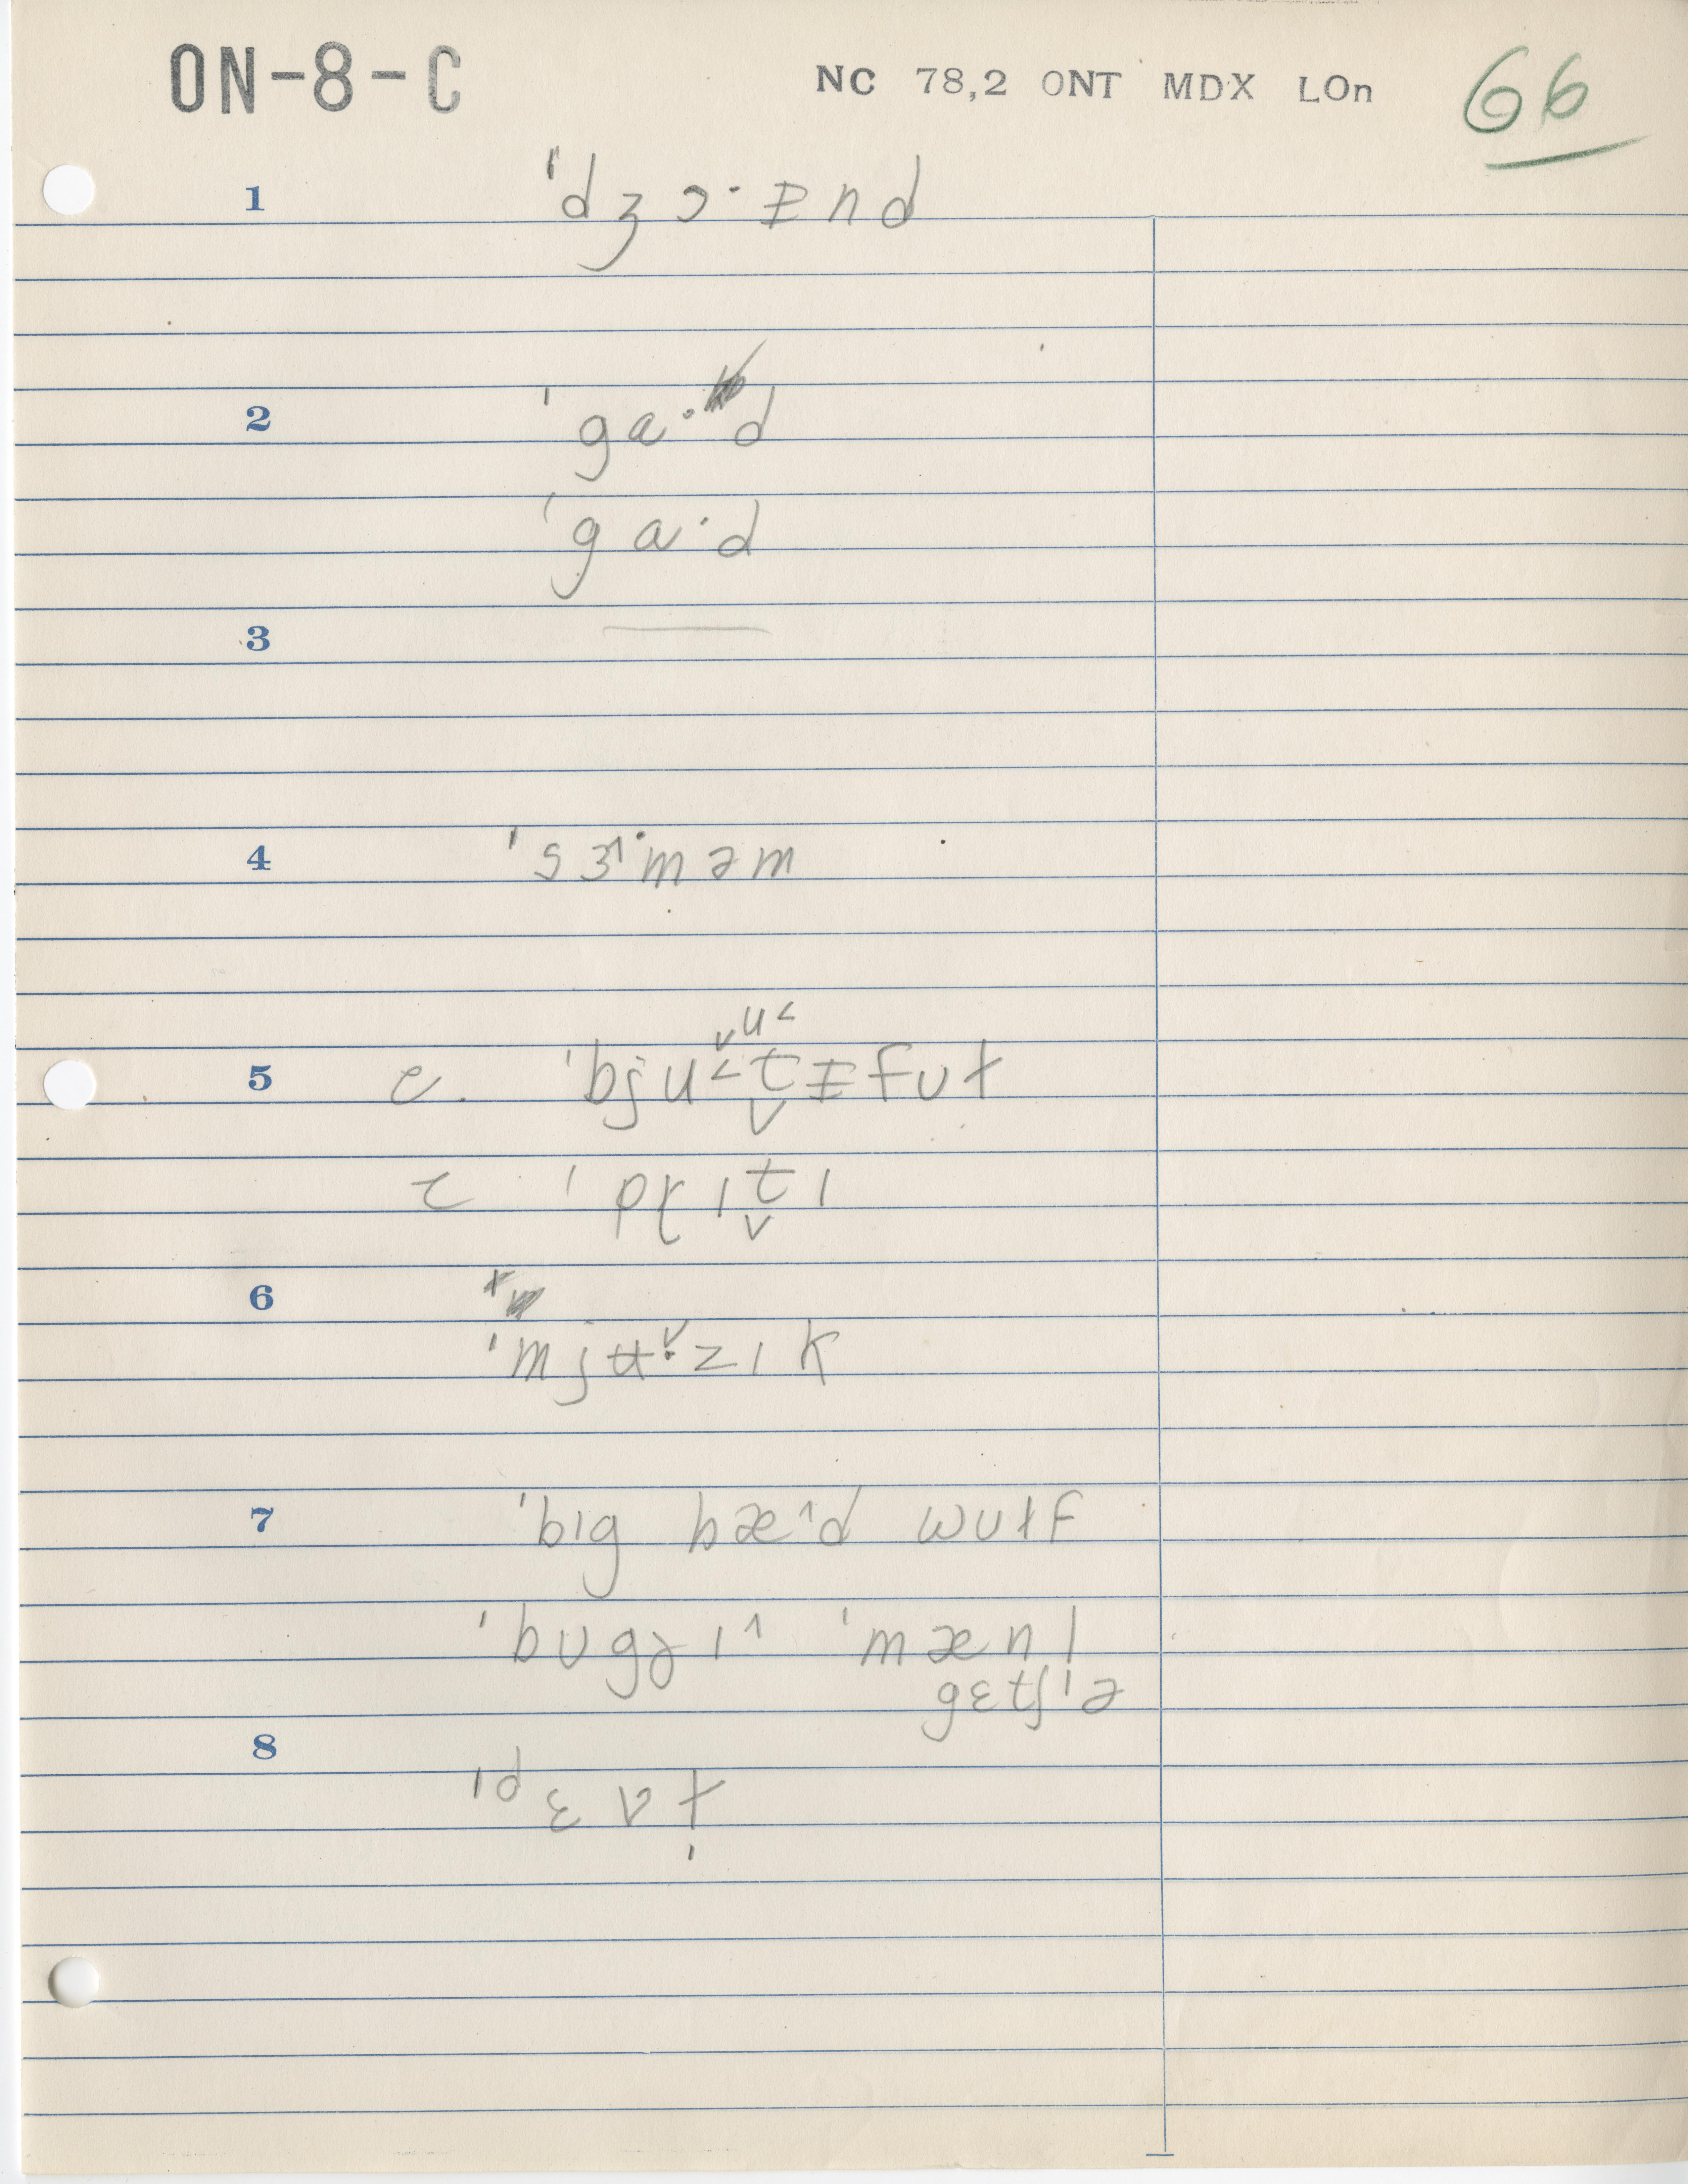 ON-8-C NC 78,2 ONT MDX LOn 66
1 ˈdʒɔ·ɪ̵nd
2 ˈga·d
ˈga·d
3 —
4 ˈsɜ˄·məm
ᵥu˂
5 c. ˈbju˂t̬ɪ̵fʊɫ
c ˈpɼɪt̬ɪ
6
ˈmjʉ·˅zɪk
7 ˈbɪg bæ^d wʊɫf
ˈbʊgɚɪ^ ˈmæn|
gɛtʃ·ɪə
8 ˈdɛvɫ̩